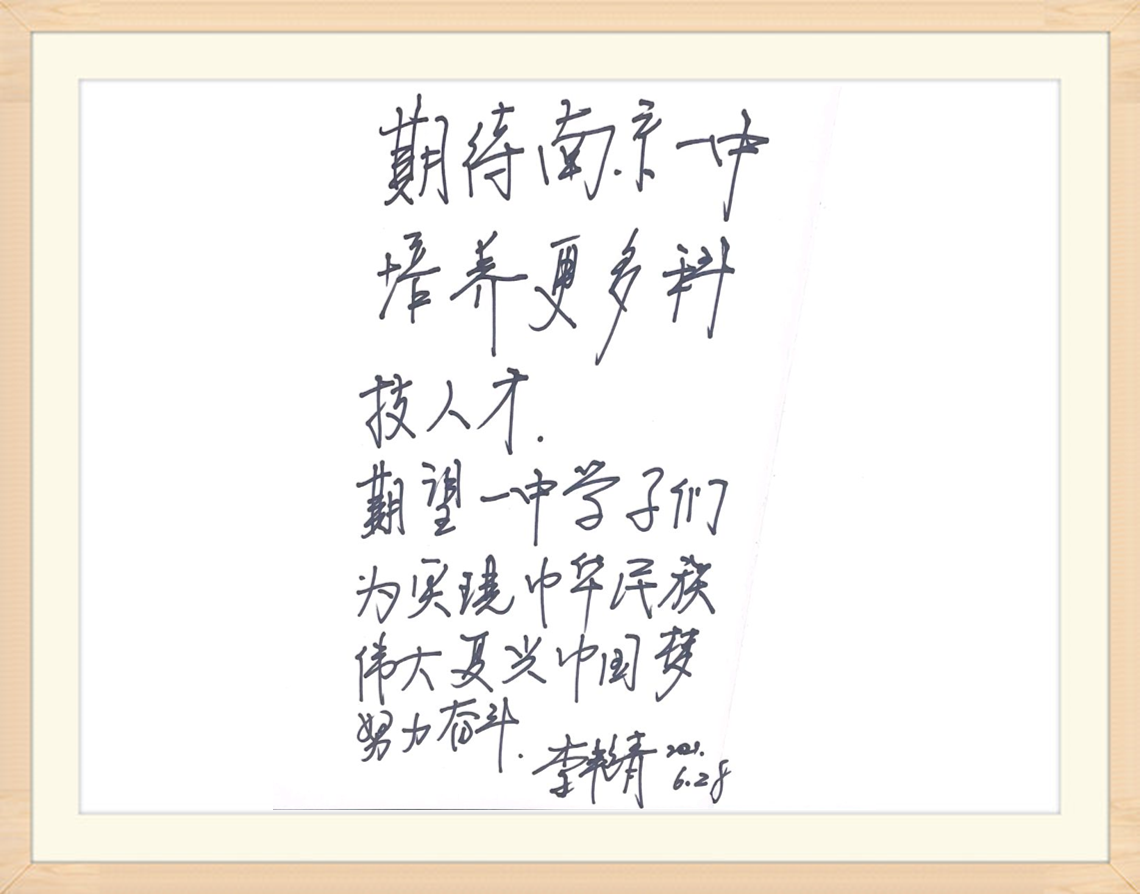 期待南京一中
培养更多科
技人才.
期望一中学子们
为实现中华民族
伟大复兴中国梦
努力奋斗.
李 青 2021.
6.28